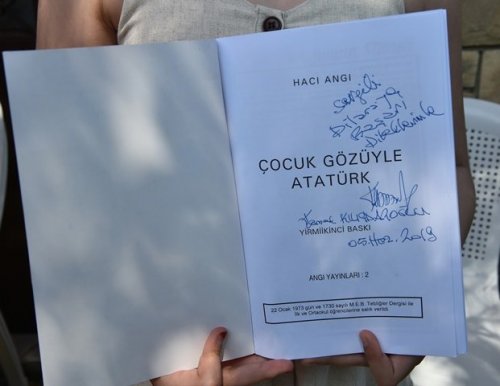 HACI ANGI
Sevgili
Dilara'ya
Başarı
Dileklerimle
ÇOCUK GÖZÜYLE
ATATÜRK
Kemal KILIÇDAROĞLU
YİRMİİKİNCİ BASKI
05.Haz. 2019
ANGI YAYINLARI : 2
22 Ocak 1973 gün ve 1730 sayılı M.E.B. Tebliğler Dergisi ile
İlk ve Ortaokul öğrencilerine salık verildi